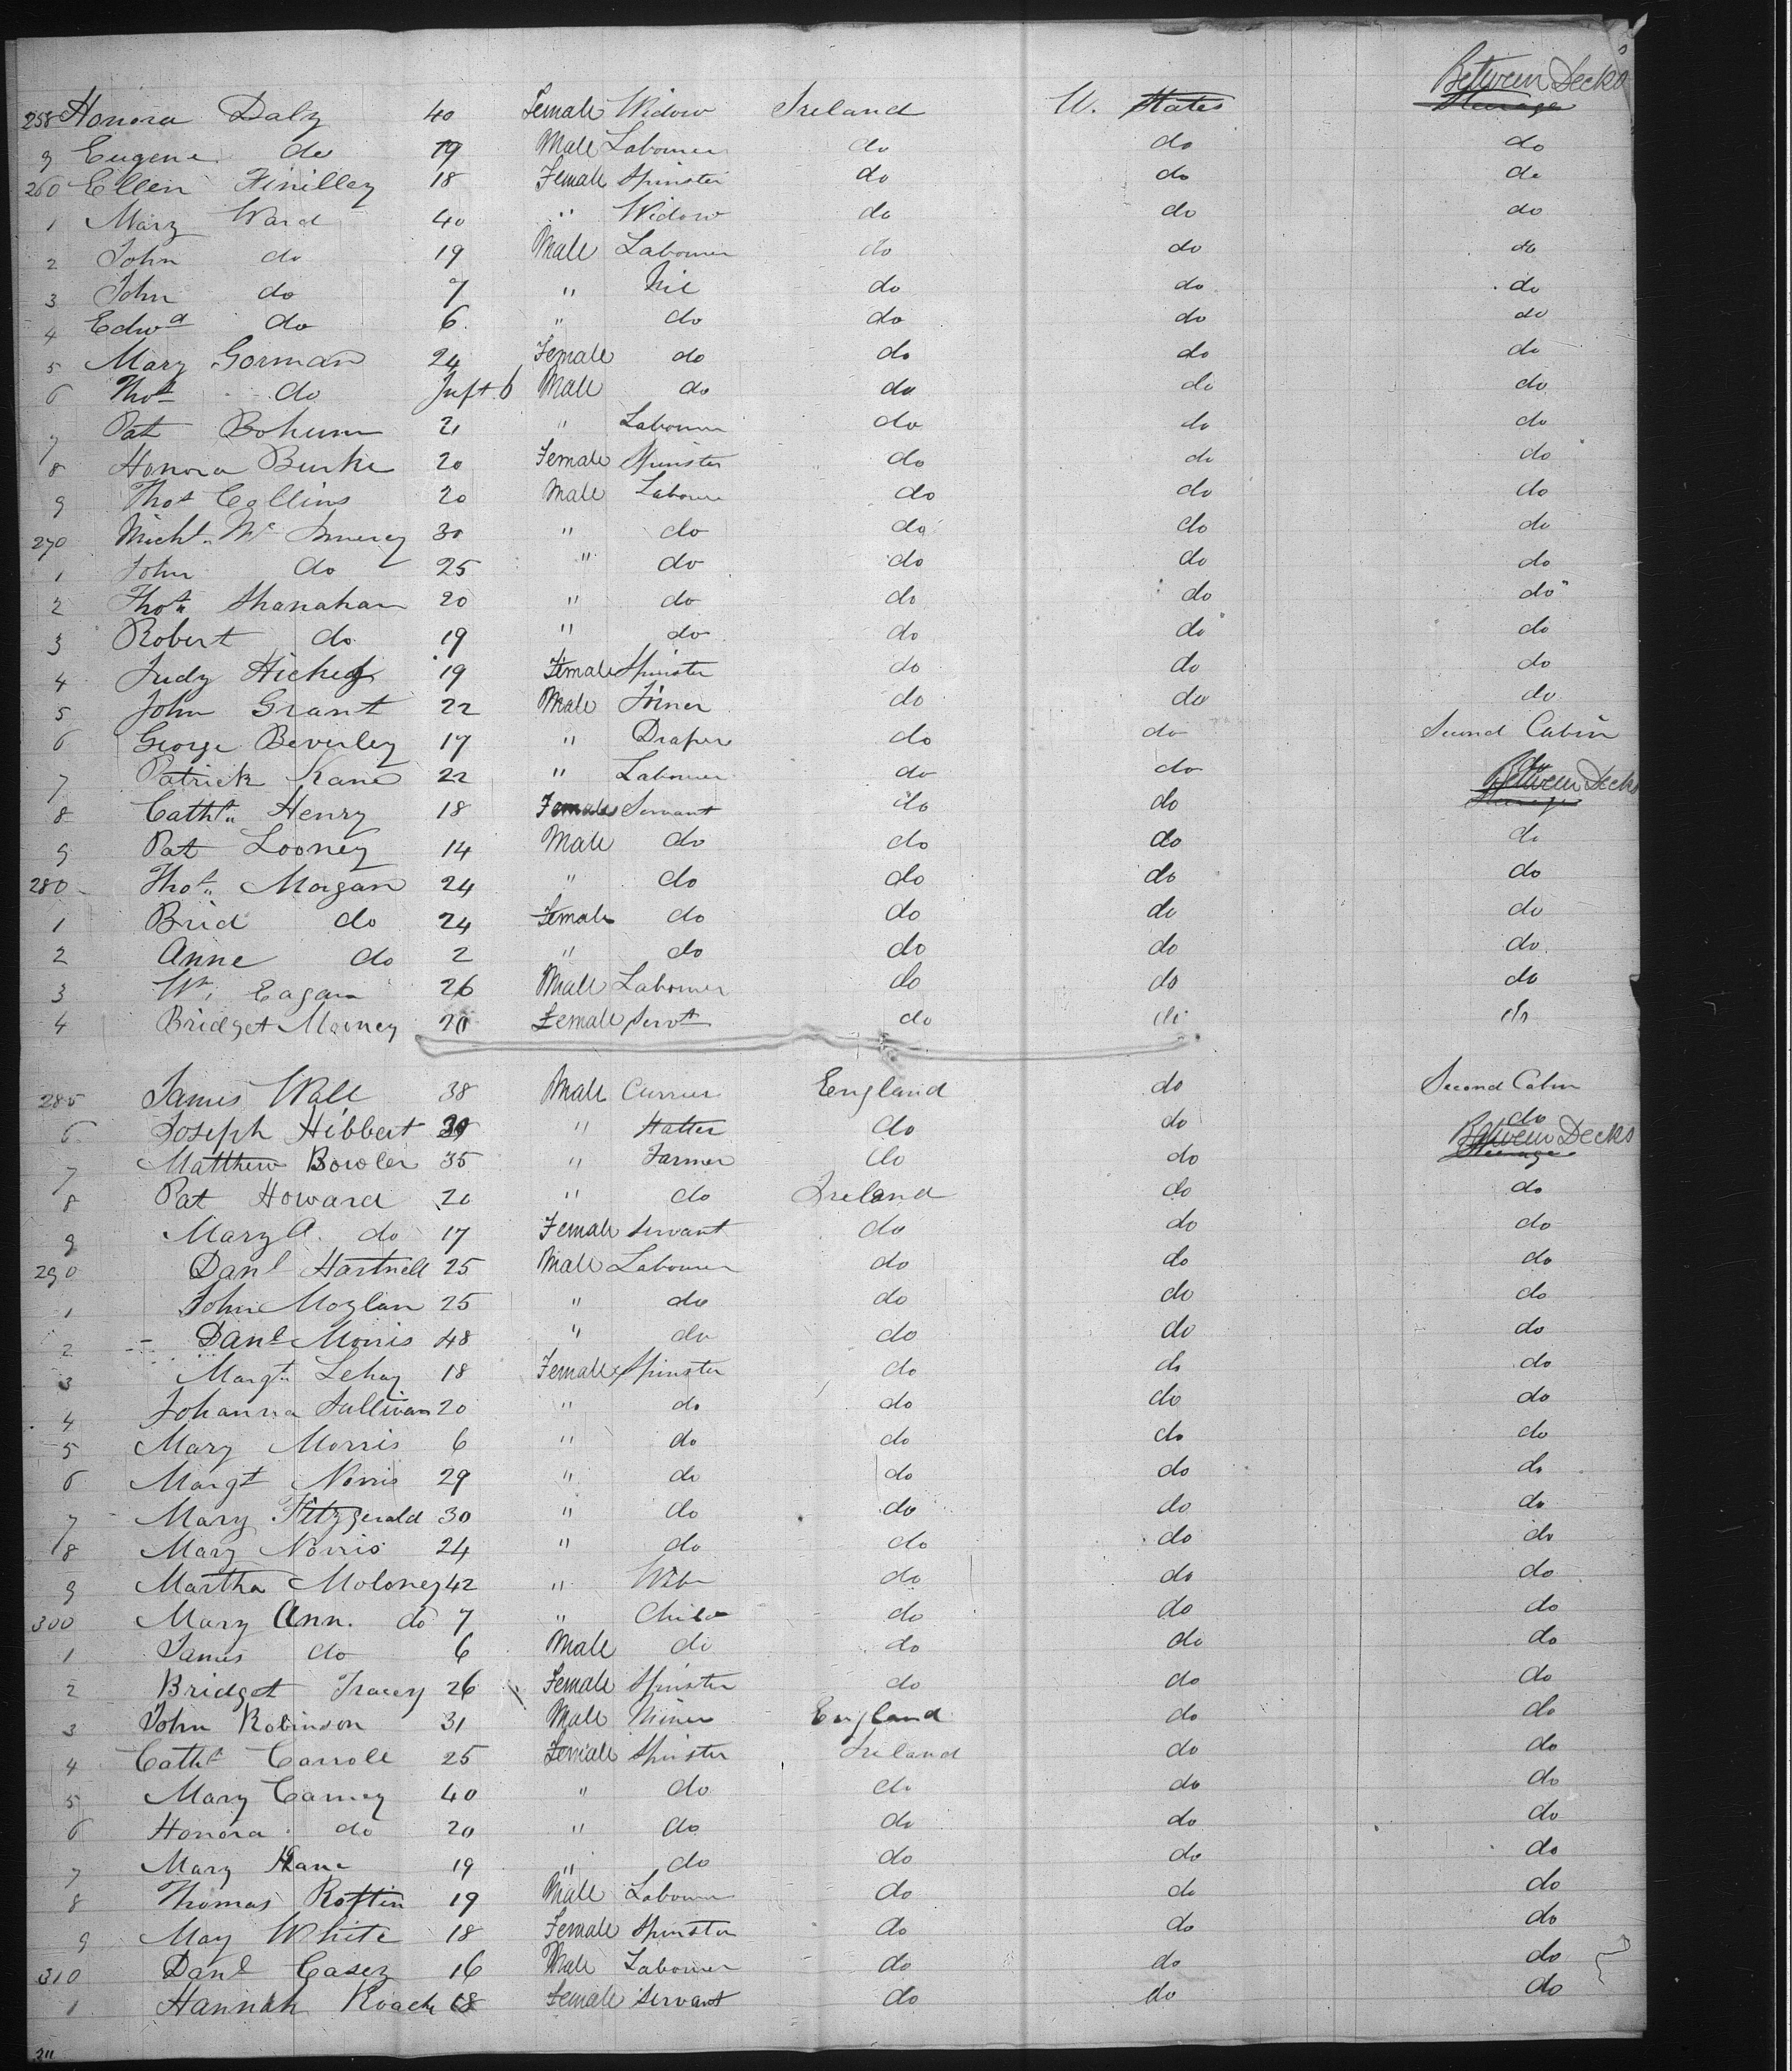 Between Decks
258 Honora Daly 40 Female Widow Ireland U. States Steerage
9 Eugene do 19 Male Labourer do do do
260 Ellen Finilley 18 Female Spinster do do do
1 Mary Ward 40 " Widow do do do
2 John do 19 Male Labourer do do do
3 John do 7 " Nil do do do
4 Edwd do 6 " do do do do
5 Mary Gorman 24 Female do do do do
6 Thos do Inft. 6 Male do do do do
7 Pat 21 " Labourer do do do
8 Honora Burke 20 Female Spinster do do do
9 Thos Collins 20 Male Labourer do do do
270 Michl. Mc 30 " do do do do
1 John do 25 " do do do do
2 Thos Shanahan 20 " do do do do
3 Robert do 19 " do do do do
4 Judy Hickey 19 Female Spinster do do do
5 John Grant 22 Male Joiner do do do
6 George Beverley 17 " Draper do do Second Cabin
7 Patrick Kane 22 " Labourer do do do
Between Decks
8 Cathn Henry 18 Female Servant do do Steerage
9 Pat Looney 14 Male do do do do
280 Thos. Morgan 24 " do do do do
1 Brid do 24 Female do do do do
2 Anne do 2 " do do do do
3 Wm Eagan 26 Male Labourer do do do
4 Bridget Mooney 20 Female Servt do do do
285 James Wall 38 Male Currier England do Second Cabin
6 Joseph Hibbert " Hatter do do do
Between Decks
7 Matthew Bowler 35 " Farmer do do Steerage
8 Pat Howard 20 " do Ireland do do
9 Mary A. do 17 Female Servant do do do
290 Danl Hartnell 25 Male Labourer do do do
1 John Moylan 25 " do do do do
2 Danl Morris 48 " do do do do
3 Margt Lehay 18 Female Spinster do do do
4 Johanna Sullivan 20 " do do do do
5 Mary Morris 6 " do do do do
6 Margt Norris 29 " do do do do
7 Mary Fitzgerald 30 " do do do do
8 Mary Norris 24 " do do do do
9 Martha Moloney 42 " Wife do do do
300 Mary Ann. do 7 " Child do do do
1 James do 6 Male do do do do
2 Bridget Tracey 26 Female Spinster do do do
3 John Robinson 31 Male Miner England do do
4 Catht Carroll 25 Female Spinster Ireland do do
5 Mary Carney 40 " do do do do
6 Honora do 20 " do do do do
7 Mary Kane 19 " do do do do
8 Thomas Roftin 19 Male Labourer do do do
9 May White 18 Female Spinster do do do
310 Danl Casey 16 Male Labourer do do do
1 Hannah Roach 18 Female Servant do do do
311